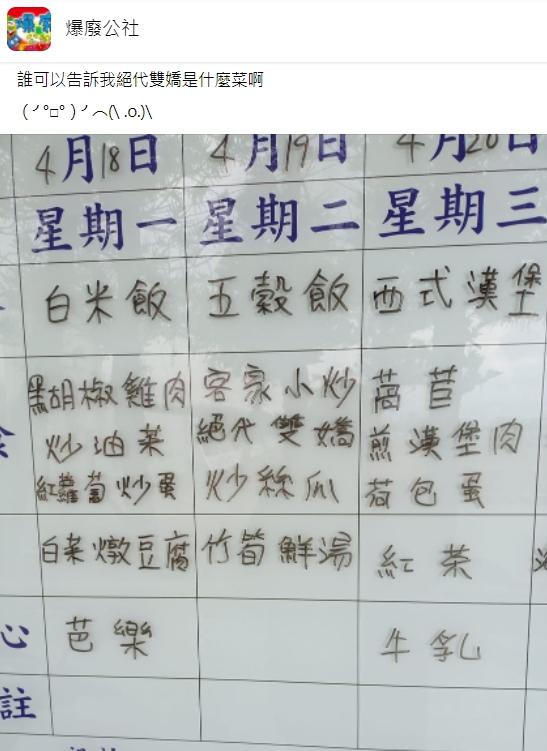 爆廢公社
誰可以告訴我絕代雙嬌是什麼菜啊
(╯°□° )╯︵(\ .o.)\
4月18日 4月19日 4月20日
星期一 星期二 星期三
白米飯 五穀飯 西式漢堡
黑胡椒雞肉 客家小炒 萵苣
炒油菜 絕代雙嬌 煎漢堡肉
紅蘿蔔炒蛋 炒絲瓜 荷包蛋
白菜燉豆腐 竹筍鮮湯 紅茶
心 芭樂 牛乳
註